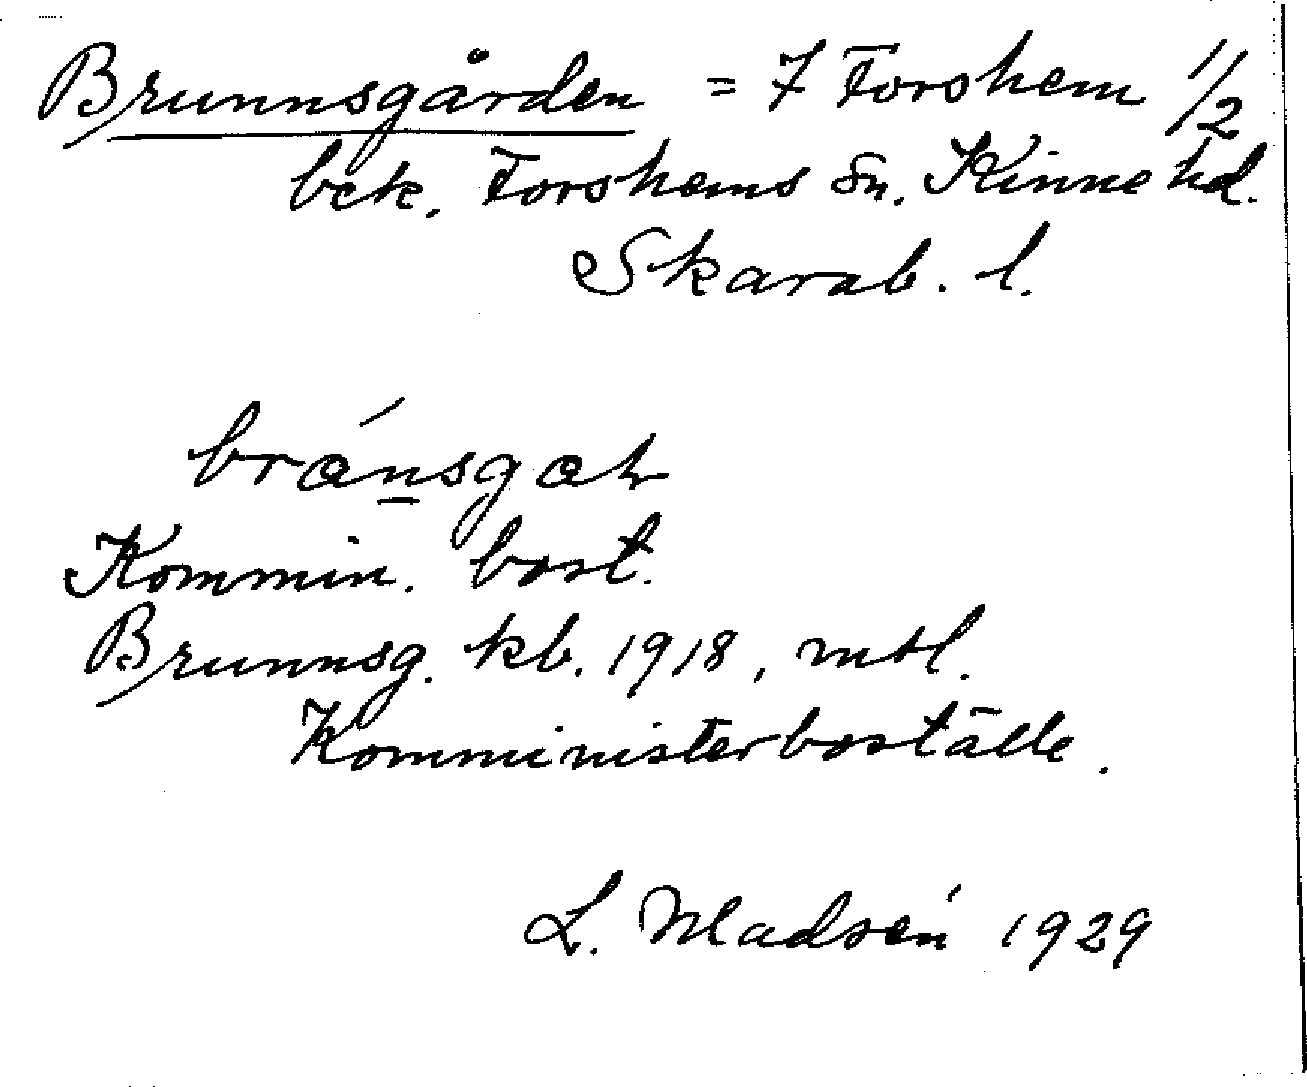 Brunnsgården = 7 Forshem 1/2
bek. Forshems sn. Kinne hd.
Skarab. l.
Kommin. bost.
Brunnsg. kb. 1918, mtl.
Kommínisterboställe.
L. Madsén 1929